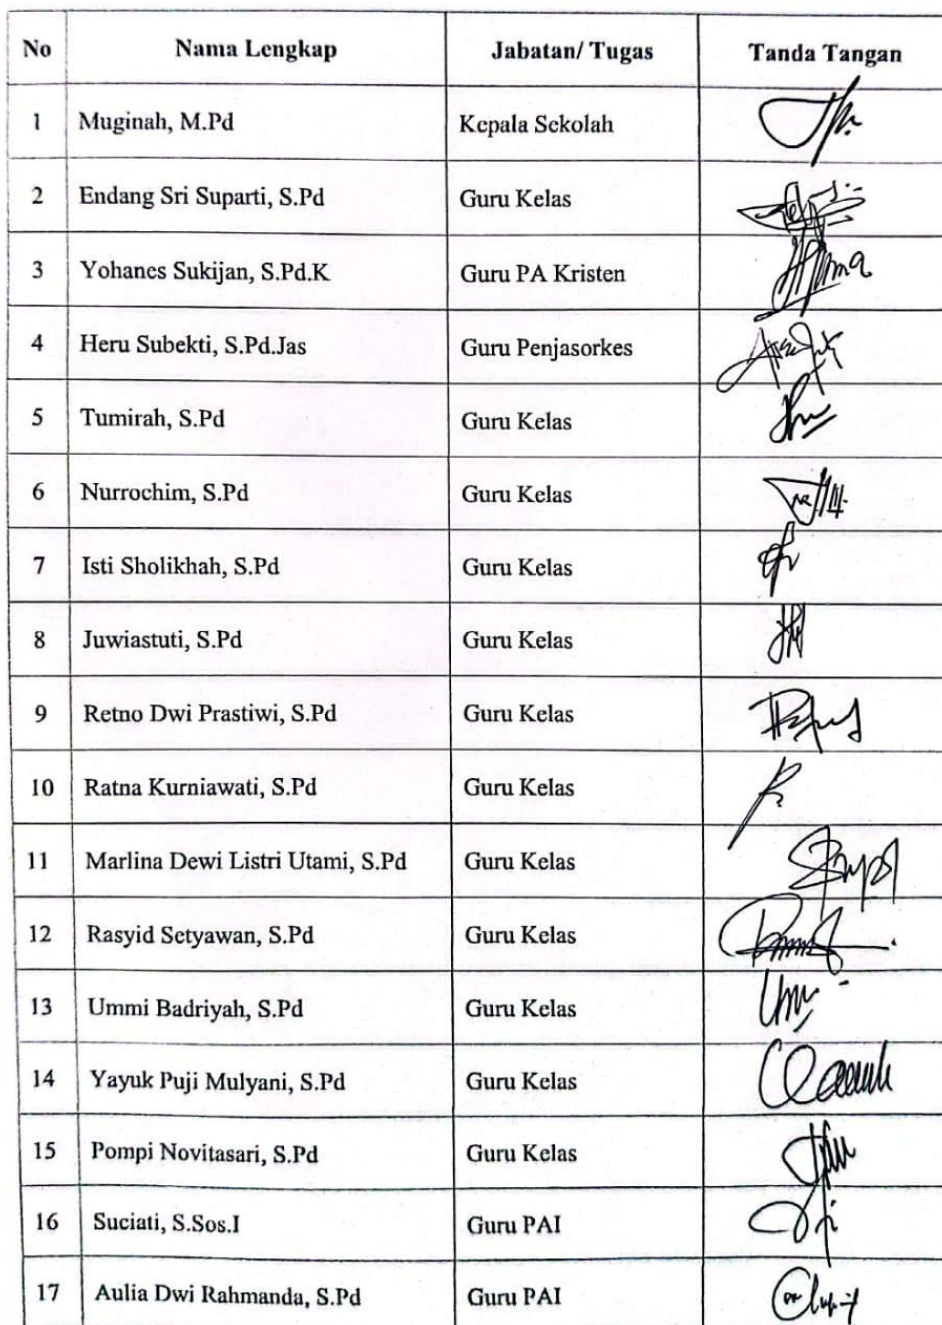 No Nama Lengkap Jabatan/ Tugas Tanda Tangan
1 Muginah, M.Pd Kepala Sekolah
2 Endang Sri Suparti, S.Pd Guru Kelas
3 Yohanes Sukijan, S.Pd.K Guru PA Kristen
4 Heru Subekti, S.Pd.Jas Guru Penjasorkes
5 Tumirah, S.Pd Guru Kelas
6 Nurrochim, S.Pd Guru Kelas
7 Isti Sholikhah, S.Pd Guru Kelas
8 Juwiastuti, S.Pd Guru Kelas
9 Retno Dwi Prastiwi, S.Pd Guru Kelas
10 Ratna Kurniawati, S.Pd Guru Kelas
11 Marlina Dewi Listri Utami, S.Pd Guru Kelas
12 Rasyid Setyawan, S.Pd Guru Kelas
13 Ummi Badriyah, S.Pd Guru Kelas
14 Yayuk Puji Mulyani, S.Pd Guru Kelas
15 Pompi Novitasari, S.Pd Guru Kelas
16 Suciati, S.Sos.I Guru PAI
17 Aulia Dwi Rahmanda, S.Pd Guru PAI